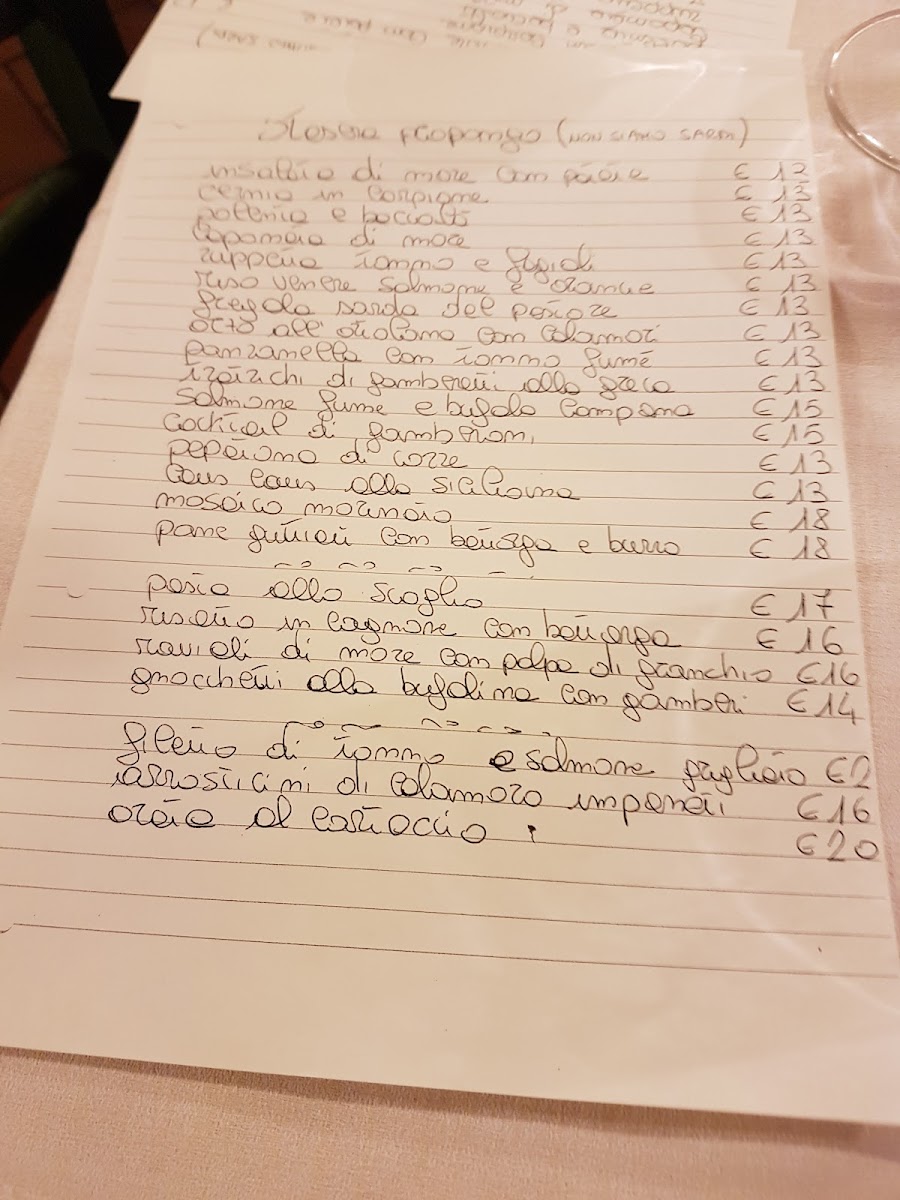 (NON SIAMO SARDI)
insalata di mare con patate € 13
cernia in carpione € 13
polenta e baccalà € 13
caponata di mare € 13
zuppetta tonno e fagioli € 13
riso venere salmone e arance € 13
fregola sarda del pescatore € 13
orto all'ortolana con calamari € 13
panzanella con tonno fumè € 13
tzatziki di gamberetti alla greca € 13
salmone fumè e bufala campana € 15
cocktail di gamberoni € 15
pepatona di cozze € 13
cous cous alla siciliana € 13
mosaico marinaro € 18
pane guttiau con bottarga e burro € 18
pasta allo scoglio € 17
risotto in cagnone con bottarga € 16
ravioli di mare con polpa di granchio € 16
gnocchetti alla bufalina con gamberi € 14
filetto di tonno e salmone grigliato € 2
arrosticini di calamaro impanati € 16
orata al cartoccio € 20